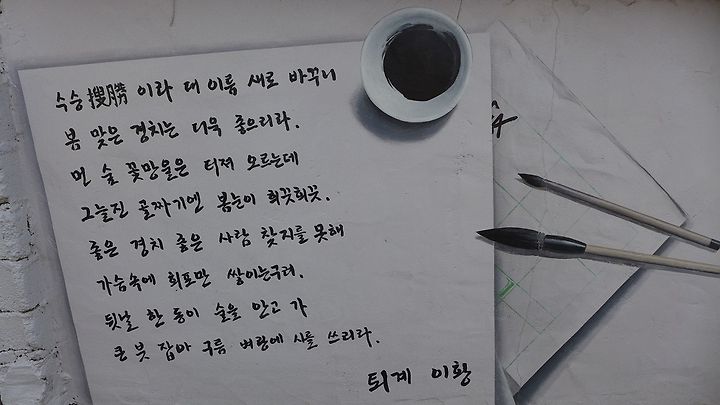 수승 搜勝 이라 대 이름 새로 바꾸니
봄 맞은 경치는 더욱 좋으리라.
먼 숲 꽃망울은 터져 오르는데
그늘진 골짜기엔 봄눈이 희끗희끗.
좋은 경치 좋은 사람 찾지를 못해
가슴속에 회포만 쌓이는구려.
뒷날 한 동이 술을 안고 가
큰 붓 잡아 구름 벼랑에 시를 쓰리라.
퇴계 이황